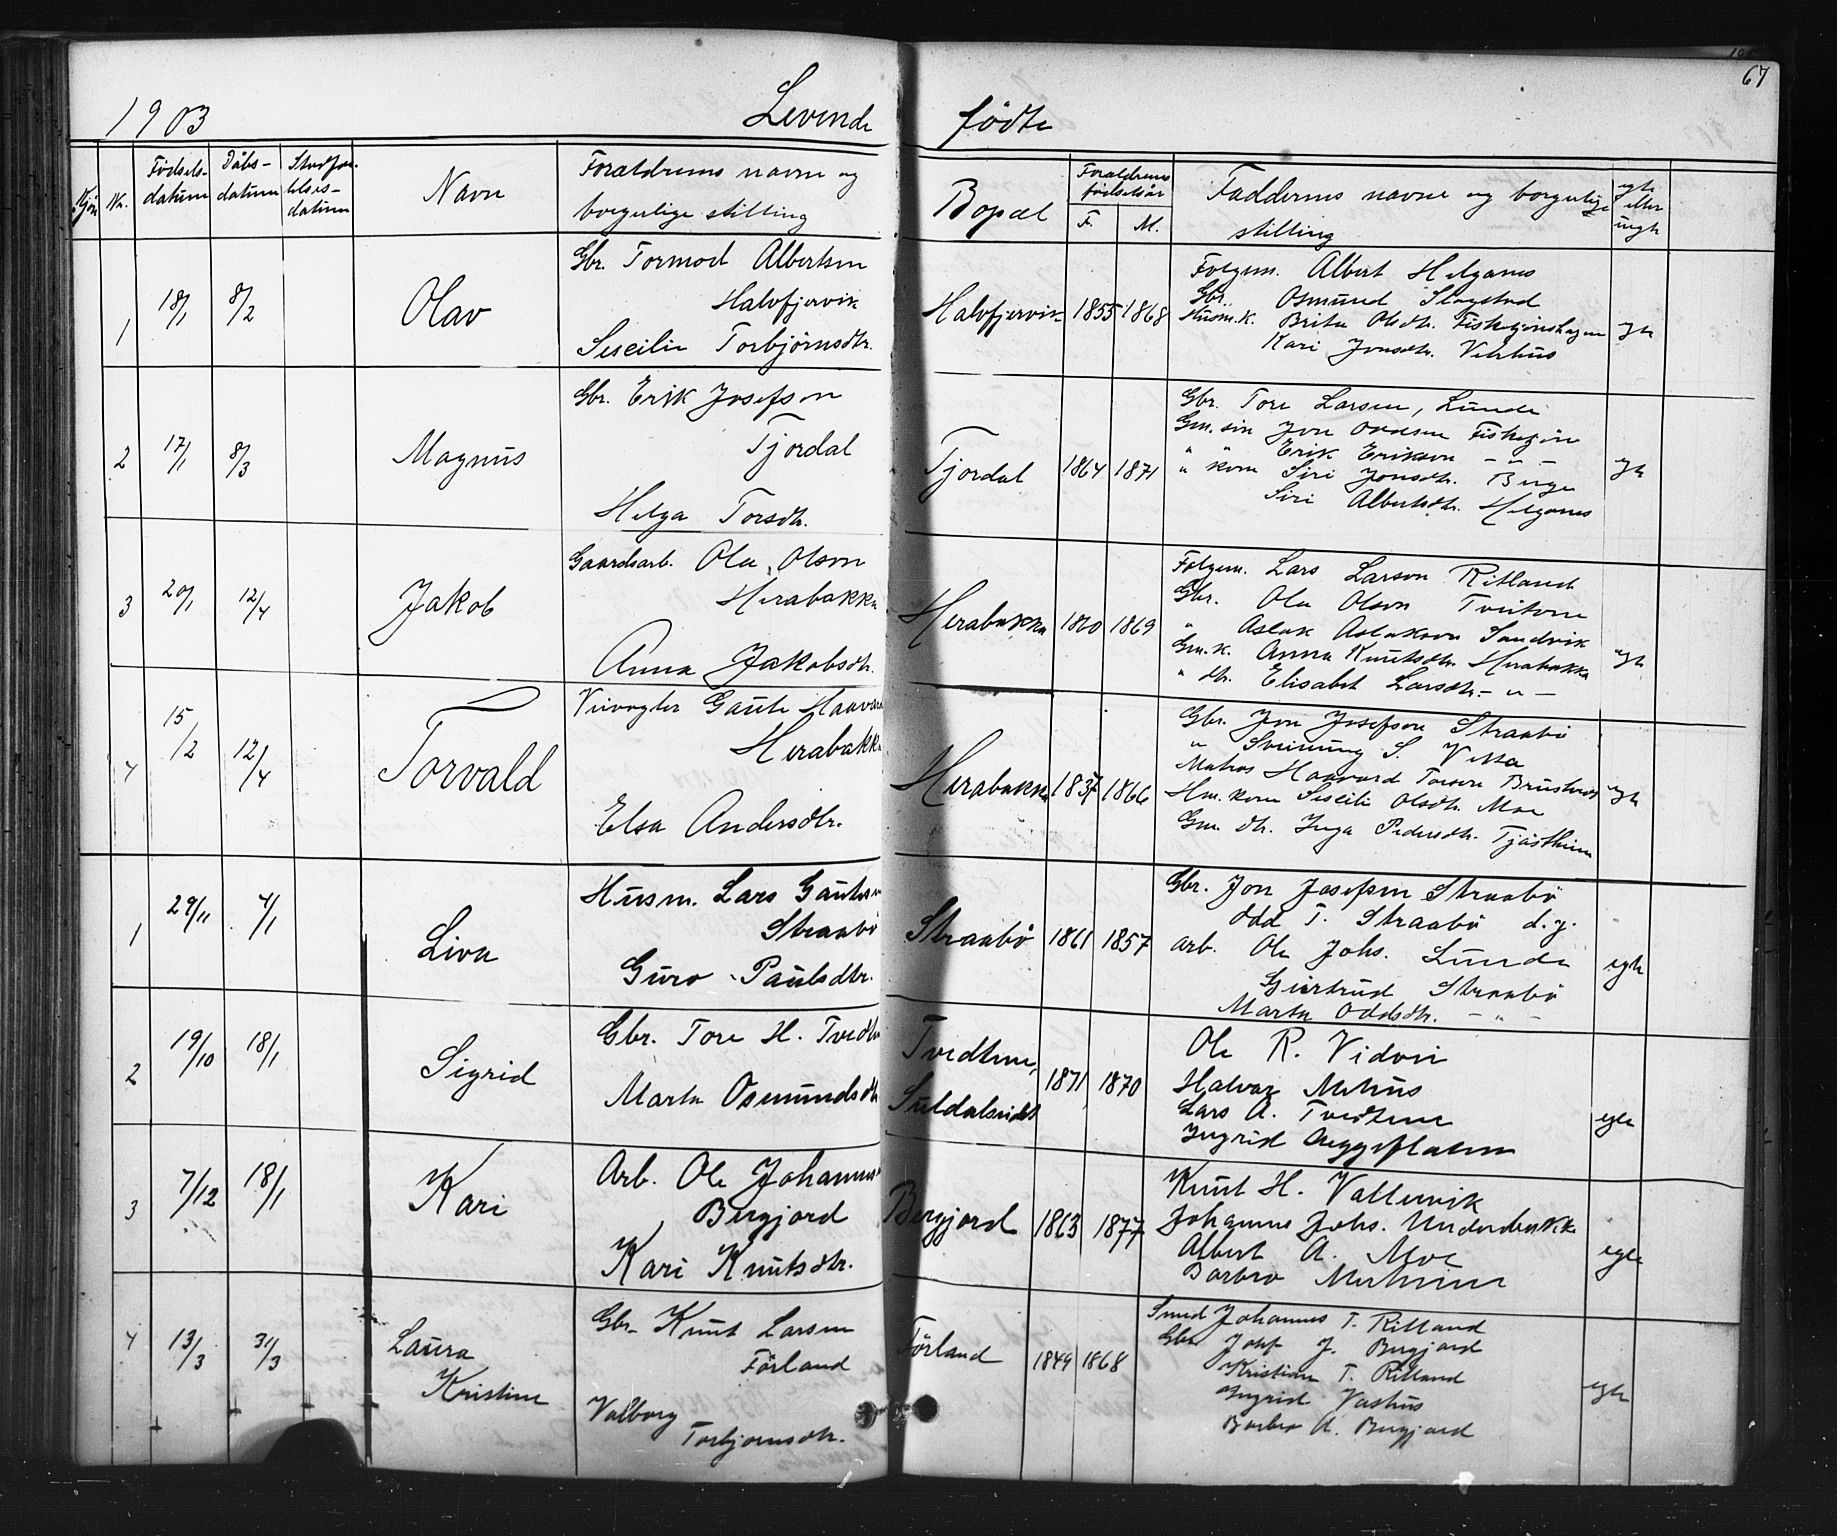 67
1903
Levende
fødte
Kjøn
Nr.
Fødsels-
datum
Dåbs-
datum
Stadfæ-
stelses-
datum
Navn
Forældrenes navne og
borgerlige stilling
Bopæl
Forældrenes
fødselsår
F.
M.
Faddernes navne og borgerlige
stilling
egte
eller
uegte
1
18/1
8/2
Olav
Gbr. Tormod Albertsen
Halvfjervik
Seseilie Torbjørnsdtr.
Halvfjervik
1855
1868
Folgem. Albert Helganes
Gbr. Osmund Slogstad
Husm.k. Brita Olsdtr.
Kari Jonsdtr. Velehus
egte
2
17/1
8/3
Magnus
Gbr. Erik Josefson
Tjordal
Helga Torsdtr.
Tjordal
1864
1871
Gbr. Tore Larsen, Lunde
Gm. søn Jon
" Erik Erikson - " -
" kone Siri Jonsdtr. Berge
Siri Albertsdtr. Helganes
egte
3
20/1
12/4
Jakob
Gaardsarb. Ola Olson
Herabakka
Anna Jakobsdtr.
Herabakka
1860
1869
Folgem. Lars Larson Ritland
Gbr. Ola Olson Tveitene
" Aslak Aslakson Sandvik
Gm. k. Anna Knutsdtr. Herabakka
" dtr. Elisabet Larsdtr. - " -
egte
4
15/2
12/4
Torvald
Veivogter Gaute Haavards
Herabakka
Elsa Andersdtr.
Herabakka
1837
1866
Gbr. Jon Josefson Straabø
" Sveinung S. Vetta
Matros Haavard
Hm. kone Seseilie Olsdtr. Moe
Gm. dtr. Inga Pedersdtr. Tjøstheim
egte
1
29/11
4/1
Liva
Husm. Lars Gautesen
Straabø
Guro Paulsdtr.
Straabø
1861
1857
Gbr. Jon Josefsen Straabø
Odd T. Straabø d.y.
Arb. Ole Johs. Lunde
Gjertrud Straabø
Marta Oddsdtr. - " -
egte
2
19/10
18/1
Sigrid
Gbr. Tore H. Tvedten
Marta Osmundsdtr
Tvedtene,
Suldalseidet
1871
1870
Ole R. Vidvei
Halvor Mehus
Lars A. Tvedtene
Ingrid
egte
3
7/12
18/1
Kari
Arb. Ole Johannes
Bergjord
Kari Knutsdtr.
Bergjord
1863
1877
Knut H. Vallervik
Johannes Johs. Underbakke
Albert A. Moe
Barbro
egte
4
13/3
31/3
Laura
Kristine
Gbr. Knut Larsen
Førland
Valborg
Torbjørnsdtr.
Førland
1849
1868
Smed Johannes T. Ritland
Gbr. Josef J. Bergjord
Kristian T. Ritland
Ingrid Vashus
Barbro A. Bergjord
egte